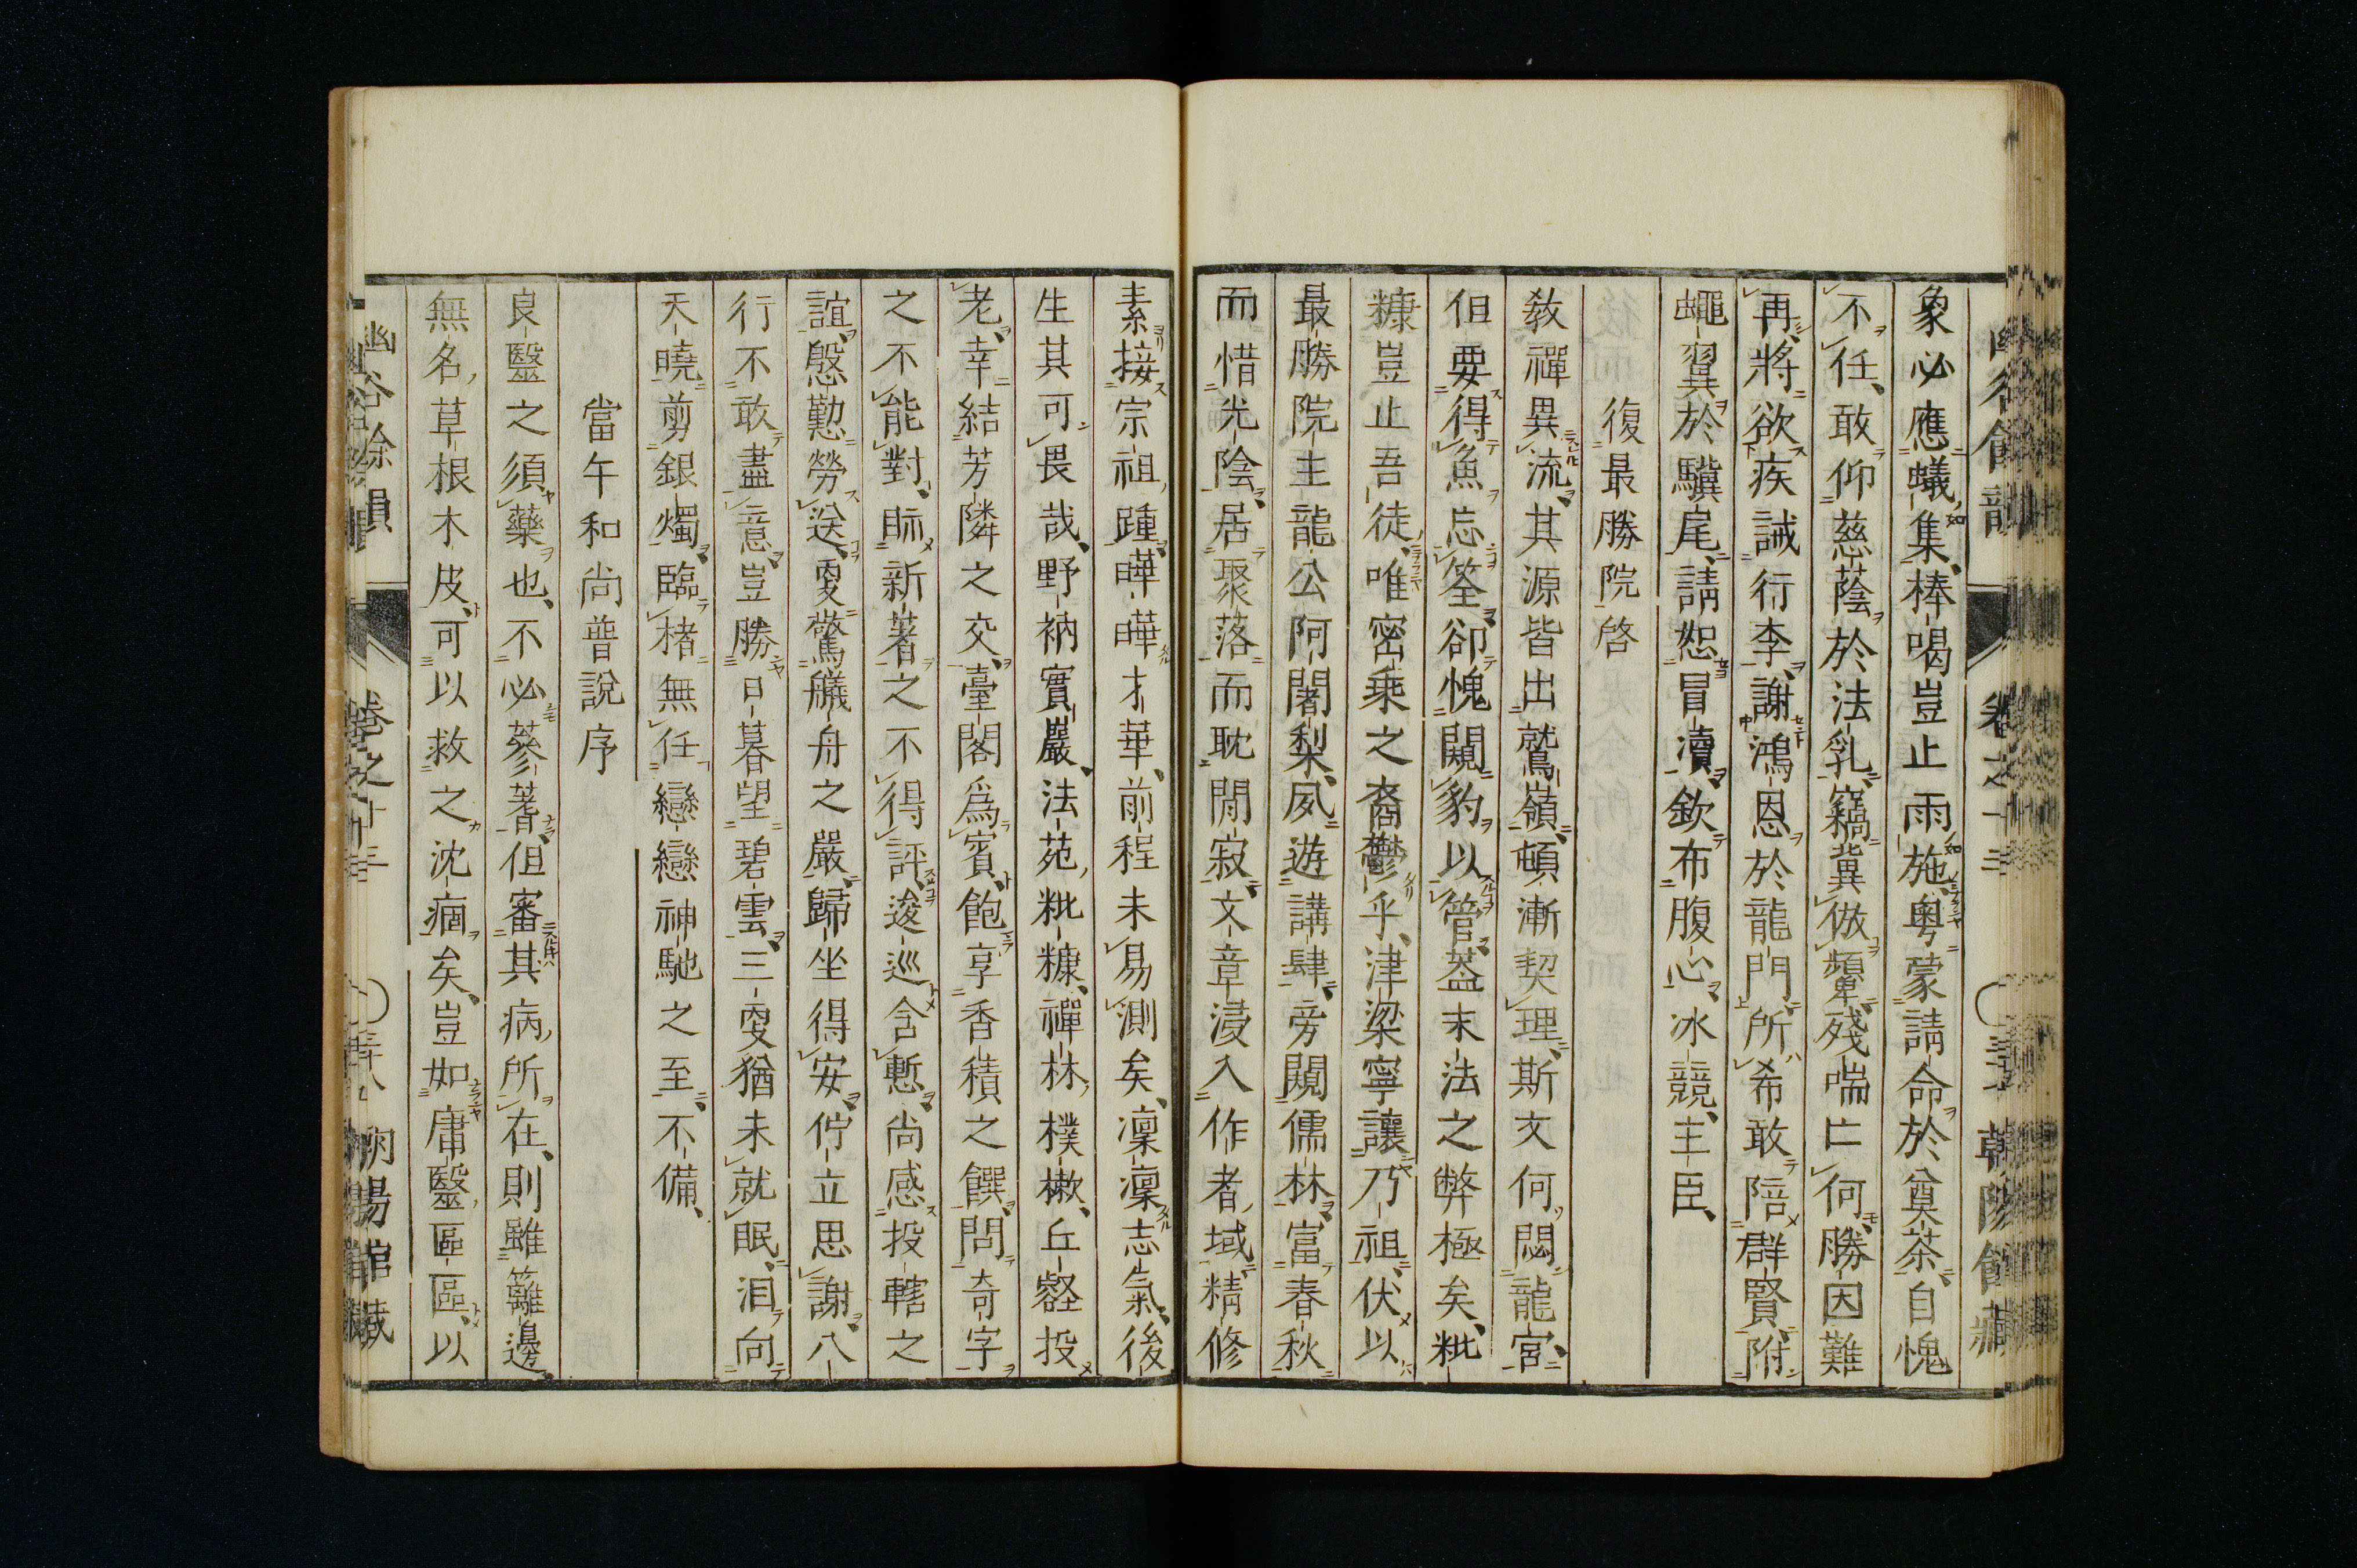 象必應蟻集棒喝豈止雨施粤蒙請命於奠茶自愧
不任敢仰慈蔭於法乳竊冀倣顰殘喘亡何勝因難
再將欲疾誡行李謝鴻恩於龍門所希敢陪群賢附
蠅翼於驥尾請恕冒瀆欽布腹心冰競主臣
復最勝院啓
教禪異流其源皆出鷲嶺頓漸契理斯文何悶龍宮
但要得魚忘筌卻愧闚豹以管葢末法之弊極矣粃
糠豈止吾徒唯密乘之裔鬱乎津梁寧讓乃祖伏以
最勝院主龍公阿闍梨夙遊講肆旁闚儒林富春秋
而惜光陰居聚落而耽閒寂文章浸入作者域精修
素接宗祖踵曄曄才華前程未易測矣凜凜志氣後
生其可畏哉野衲實巖法苑粃糠禪林樸樕丘壑投
老幸結芳隣之交臺閣爲賓飽享香積之饌問奇字
之不能對眎新著之不得評逡巡含慙尚感投轄之
誼慇懃勞送叓驚艤舟之嚴歸坐得安佇立思謝八
行不敢盡意豈勝日暮望碧雲三叓猶未就眠洎向
天曉剪銀燭臨楮無任戀戀神馳之至不備
當午和尚普說序
良醫之須藥也不必蔘蓍但審其病所在則雖籬邊
無名草根木皮可以救之沈痼矣豈如庸醫區區以
幽谷餘韻 卷之十三 朝陽館藏